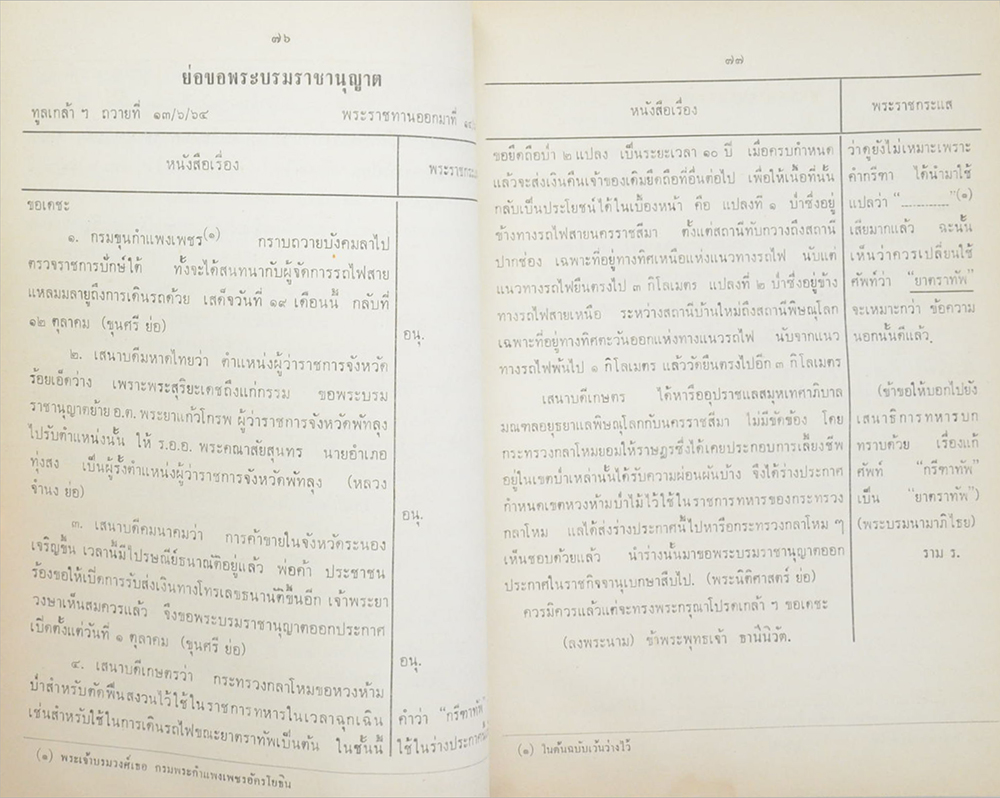 ๗๖
ย่อขอพระบรมราชานุญาต
ทูลเกล้า ฯ ถวายที่ ๑๓/๖/๖๔ พระราชทานออกมาที่
หนังสือเรื่อง
ขอเดชะ
๑. กรมขุนกำแพงเพชร(๑) กราบถวายบังคมลาไป
ตรวจราชการปักษ์ใต้ ทั้งจะได้สนทนากับผู้จัดการรถไฟสาย
แหลมมลายูถึงการเดินรถด้วย เสด็จวันที่ ๑๙ เดือนนี้ กลับที่
๑๒ ตุลาคม (ขุนศรี ย่อ)
อนุ.
๒. เสนาบดีมหาดไทยว่า ตำแหน่งผู้ว่าราชการจังหวัด
ร้อยเอ็ดว่าง เพราะพระสุริยะเดชถึงแก่กรรม ขอพระบรม
ราชานุญาตย้าย อ.ต. พระยาแก้วโกรพ ผู้ว่าราชการจังหวัดพัทลุง
ไปรับตำแหน่งนั้น ให้ ร.อ.อ. พระคณาสัยสุนทร นายอำเภอ
ทุ่งสง เป็นผู้รั้งตำแหน่งผู้ว่าราชการจังหวัดพัทลุง (หลวง
จำนง ย่อ)
อนุ.
๓. เสนาบดีคมนาคมว่า การค้าขายในจังหวัดระนอง
เจริญขึ้น เวลานี้มีไปรษณีย์ธนาณัติอยู่แล้ว พ่อค้า ประชาชน
ร้องขอให้เปิดการรับส่งเงินทางโทรเลขธนานัติขึ้นอีก เจ้าพระยา
วงษาเห็นสมควรแล้ว จึงขอพระบรมราชานุญาตออกประกาศ
เปิดตั้งแต่วันที่ ๑ ตุลาคม (ขุนศรี ย่อ)
อนุ.
๔. เสนาบดีเกษตรว่า กระทรวงกลาโหมขอหวงห้าม
ป่าสำหรับตัดฟืนสงวนไว้ใช้ในราชการทหารในเวลาฉุกเฉิน
เช่นสำหรับใช้ในการเดินรถไฟขณะยาตราทัพเป็นต้น ในชั้นนี้
คำว่า "กรีฑาทัพ"
ใช้ในร่างประกาศ
(๑) พระเจ้าบรมวงศ์เธอ กรมพระกำแพงเพชรอัครโยธิน
๗๗
หนังสือเรื่อง
พระราชกระแส
ขอยึดถือป่า ๒ แปลง เป็นระยะเวลา ๑๐ ปี เมื่อครบกำหนด
แล้วจะส่งเงินคืนเจ้าของเดิมยึดถือที่อื่นต่อไป เพื่อให้เนื้อที่นั้น
กลับเป็นประโยชน์ได้ในเบื้องหน้า คือ แปลงที่ ๑ ป่าซึ่งอยู่
ข้างทางรถไฟสายนครราชสีมา ตั้งแต่สถานีทับกวางถึงสถานี
ปากช่อง เฉพาะที่อยู่ทางทิศเหนือแห่งแนวทางรถไฟ นับแต่
แนวทางรถไฟยืนตรงไป ๓ กิโลเมตร แปลงที่ ๒ ป่าซึ่งอยู่ข้าง
ทางรถไฟสายเหนือ ระหว่างสถานีบ้านใหม่ถึงสถานีพิษณุโลก
เฉพาะที่อยู่ทางทิศตะวันออกแห่งทางแนวรถไฟ นับจากแนว
ทางรถไฟพ้นไป ๑ กิโลเมตร แล้ววัดยืนตรงไปอีก ๓ กิโลเมตร
เสนาบดีเกษตร ได้หารืออุปราชแลสมุหเทศาภิบาล
มณฑลอยุธยาแลพิษณุโลกกับนครราชสีมา ไม่มีขัดข้อง โดย
กระทรวงกลาโหมยอมให้ราษฎรซึ่งได้เคยประกอบการเลี้ยงชีพ
อยู่ในเขตป่าเหล่านั้นได้รับความผ่อนผันบ้าง จึงได้ร่างประกาศ
กำหนดเขตหวงห้ามป่าไม้ไว้ใช้ในราชการทหารของกระทรวง
กลาโหม แลได้ส่งร่างประกาศนี้ไปหารือกระทรวงกลาโหม ๆ
เห็นชอบด้วยแล้ว นำร่างนั้นมาขอพระบรมราชานุญาตออก
ประกาศในราชกิจจานุเบกษาสืบไป. (พระนิติศาสตร์ ย่อ)
ควรมิควรแล้วแต่จะทรงพระกรุณาโปรดเกล้า ฯ ขอเดชะ
(ลงพระนาม) ข้าพระพุทธเจ้า ธานีนิวัต.
ว่าดูยังไม่เหมาะเพราะ
คำกรีฑา ได้นำมาใช้
แปลว่า "............"(๑)
เสียมากแล้ว ฉะนั้น
เห็นว่าควรเปลี่ยนใช้
ศัพท์ว่า "ยาตราทัพ"
จะเหมาะกว่า ข้อความ
นอกนั้นดีแล้ว.
(ข้าขอให้บอกไปยัง
เสนาธิการทหารบก
ทราบด้วย เรื่องแก้
ศัพท์ "กรีฑาทัพ"
เป็น "ยาตราทัพ")
(พระบรมนามาภิไธย)
ราม ร.
(๑) ในต้นฉบับเว้นว่างไว้